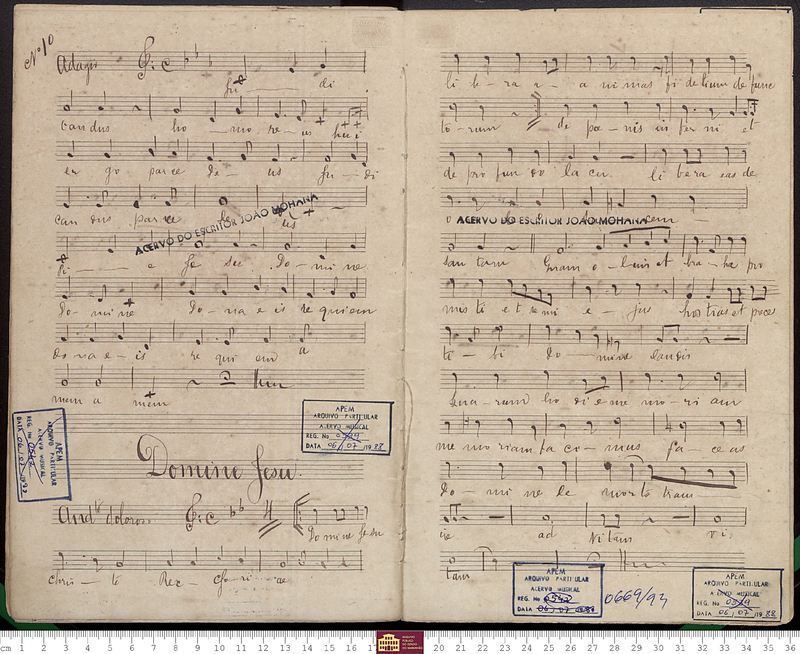 Nº 10
Adagio
Ju di
candus ho mo re us huic
er go parce De us Ju di
can dus parce De us
ACERVO DO ESCRITOR JOÃO MOHANA
e Je su Do mi ne
Do mi ne do na e is re quiem
do na e is re qui em a
mem a mem
APEM
ARQUIVO PARTICULAR
ACERVO MUSICAL
REG. No
DATA 06/07/1988
APEM
ARQUIVO PARTICULAR
ACERVO MUSICAL
REG. No
DATA 06/07/19
Domine Jesu.
Andte doloroso
Domine Jesu
Chris te Rex Glo ri ae
li be ra a ni mas fi delium de func
to rum de pa nis in fer ni et
de pro fun do la cu li be ra eas de
o
ACERVO DO ESCRITOR JOÃO MOHANA
sanctam Quam o lim et bra ha pro
mis ti et semi e jus hostias et preces
ti bi do mine laudis
Qua rum ho di e me mo ri am
me moriam fa ci mus fa ce as
do mi ne de morte tram
ie ad Vitam vi
tam
APEM
ARQUIVO PARTICULAR
ACERVO MUSICAL
REG. No 0542
DATA 06/07/1988
0669/94
APEM
ARQUIVO PARTICULAR
ACERVO MUSICAL
REG. No
DATA 06/07/1988
cm 1 2 3 4 5 6 7 8 9 10 11 12 13 14 15 16 17 20 21 22 23 24 25 26 27 28 29 30 31 32 33 34 35 36